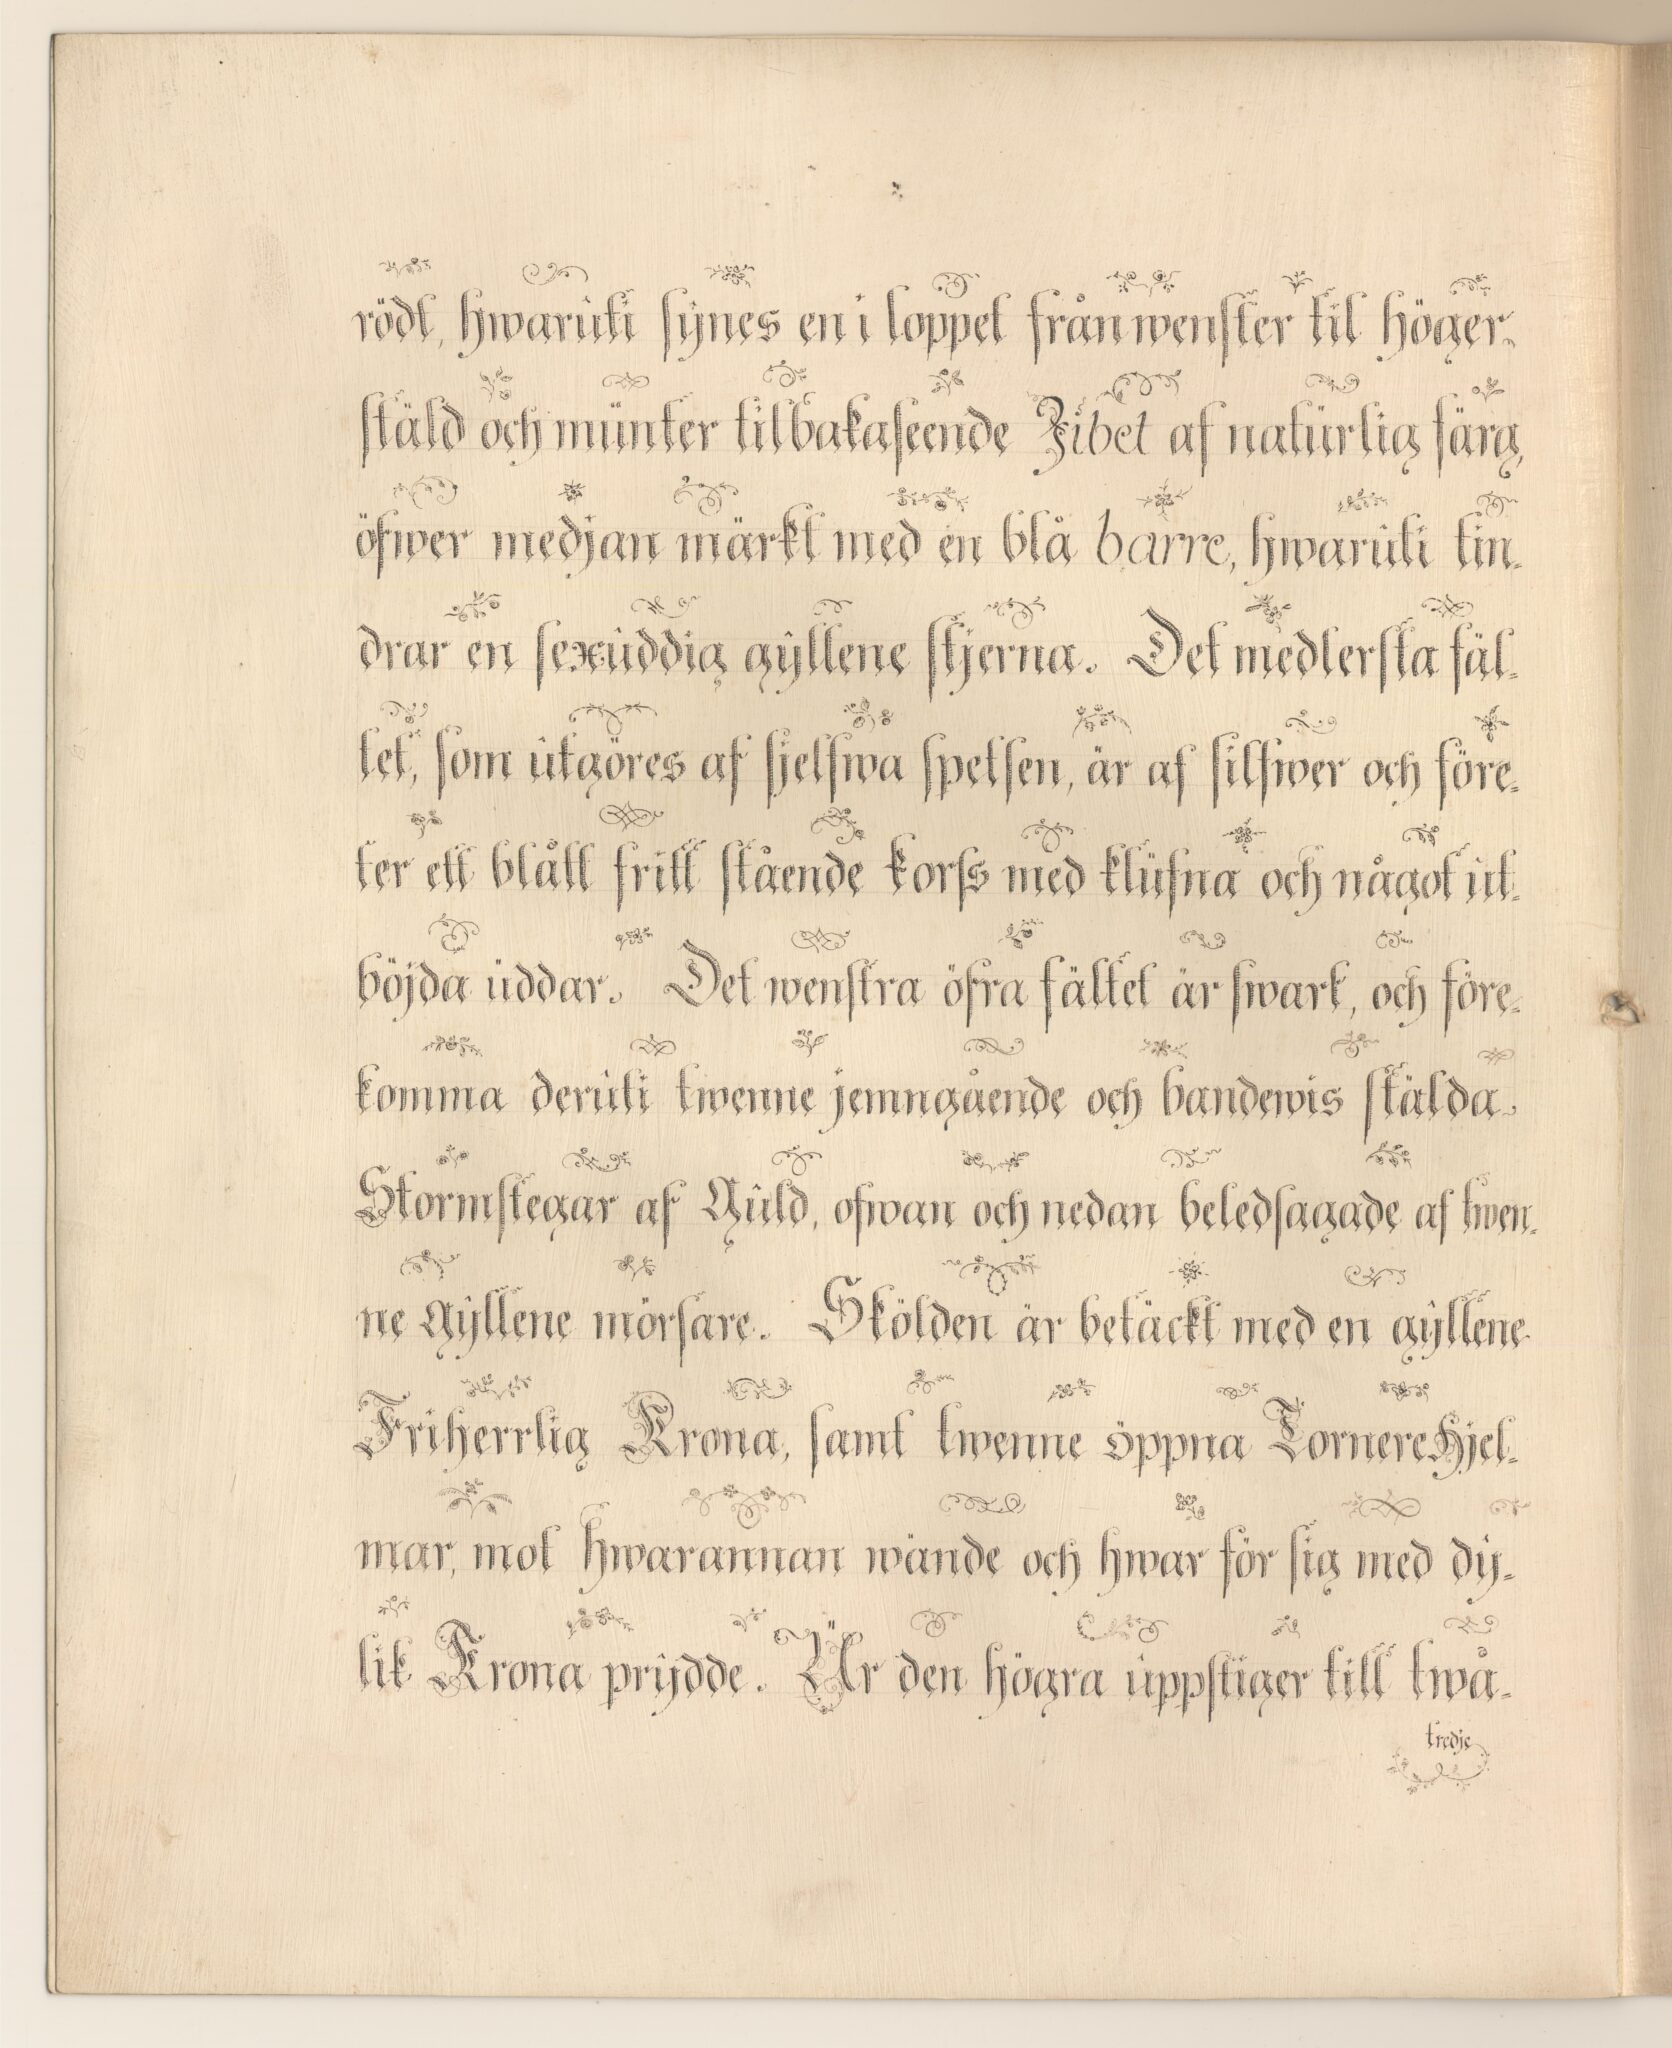 rödt, hwaruti synes en i loppet från wenster til höger
stäld och munter tilbakaseende Zibet af naturlig färg,
öfwer medjan märkt med en blå barre, hwaruti tin-
drar en sexuddig gyllene stjerna. Det medlersta fäl-
tet, som utgöres af sjelfwa spetsen, är af silfwer och före-
ter ett blått fritt stående korss med klufna och något ut-
böjda uddar. Det wenstra öfra fältet är swart, och före-
komma deruti twenne jemngående och bandewis stälda
Stormstegar af Guld, ofwan och nedan beledsagade af twen-
ne Gyllene mörsare. Skölden är betäckt med en gyllene
Friherrlig Krona, samt twenne öppna TornereHjel-
mar, mot hwarannan wände och hwar för sig med dy-
lik Krona prydde. Ur den högra uppstiger till twå-
tredje